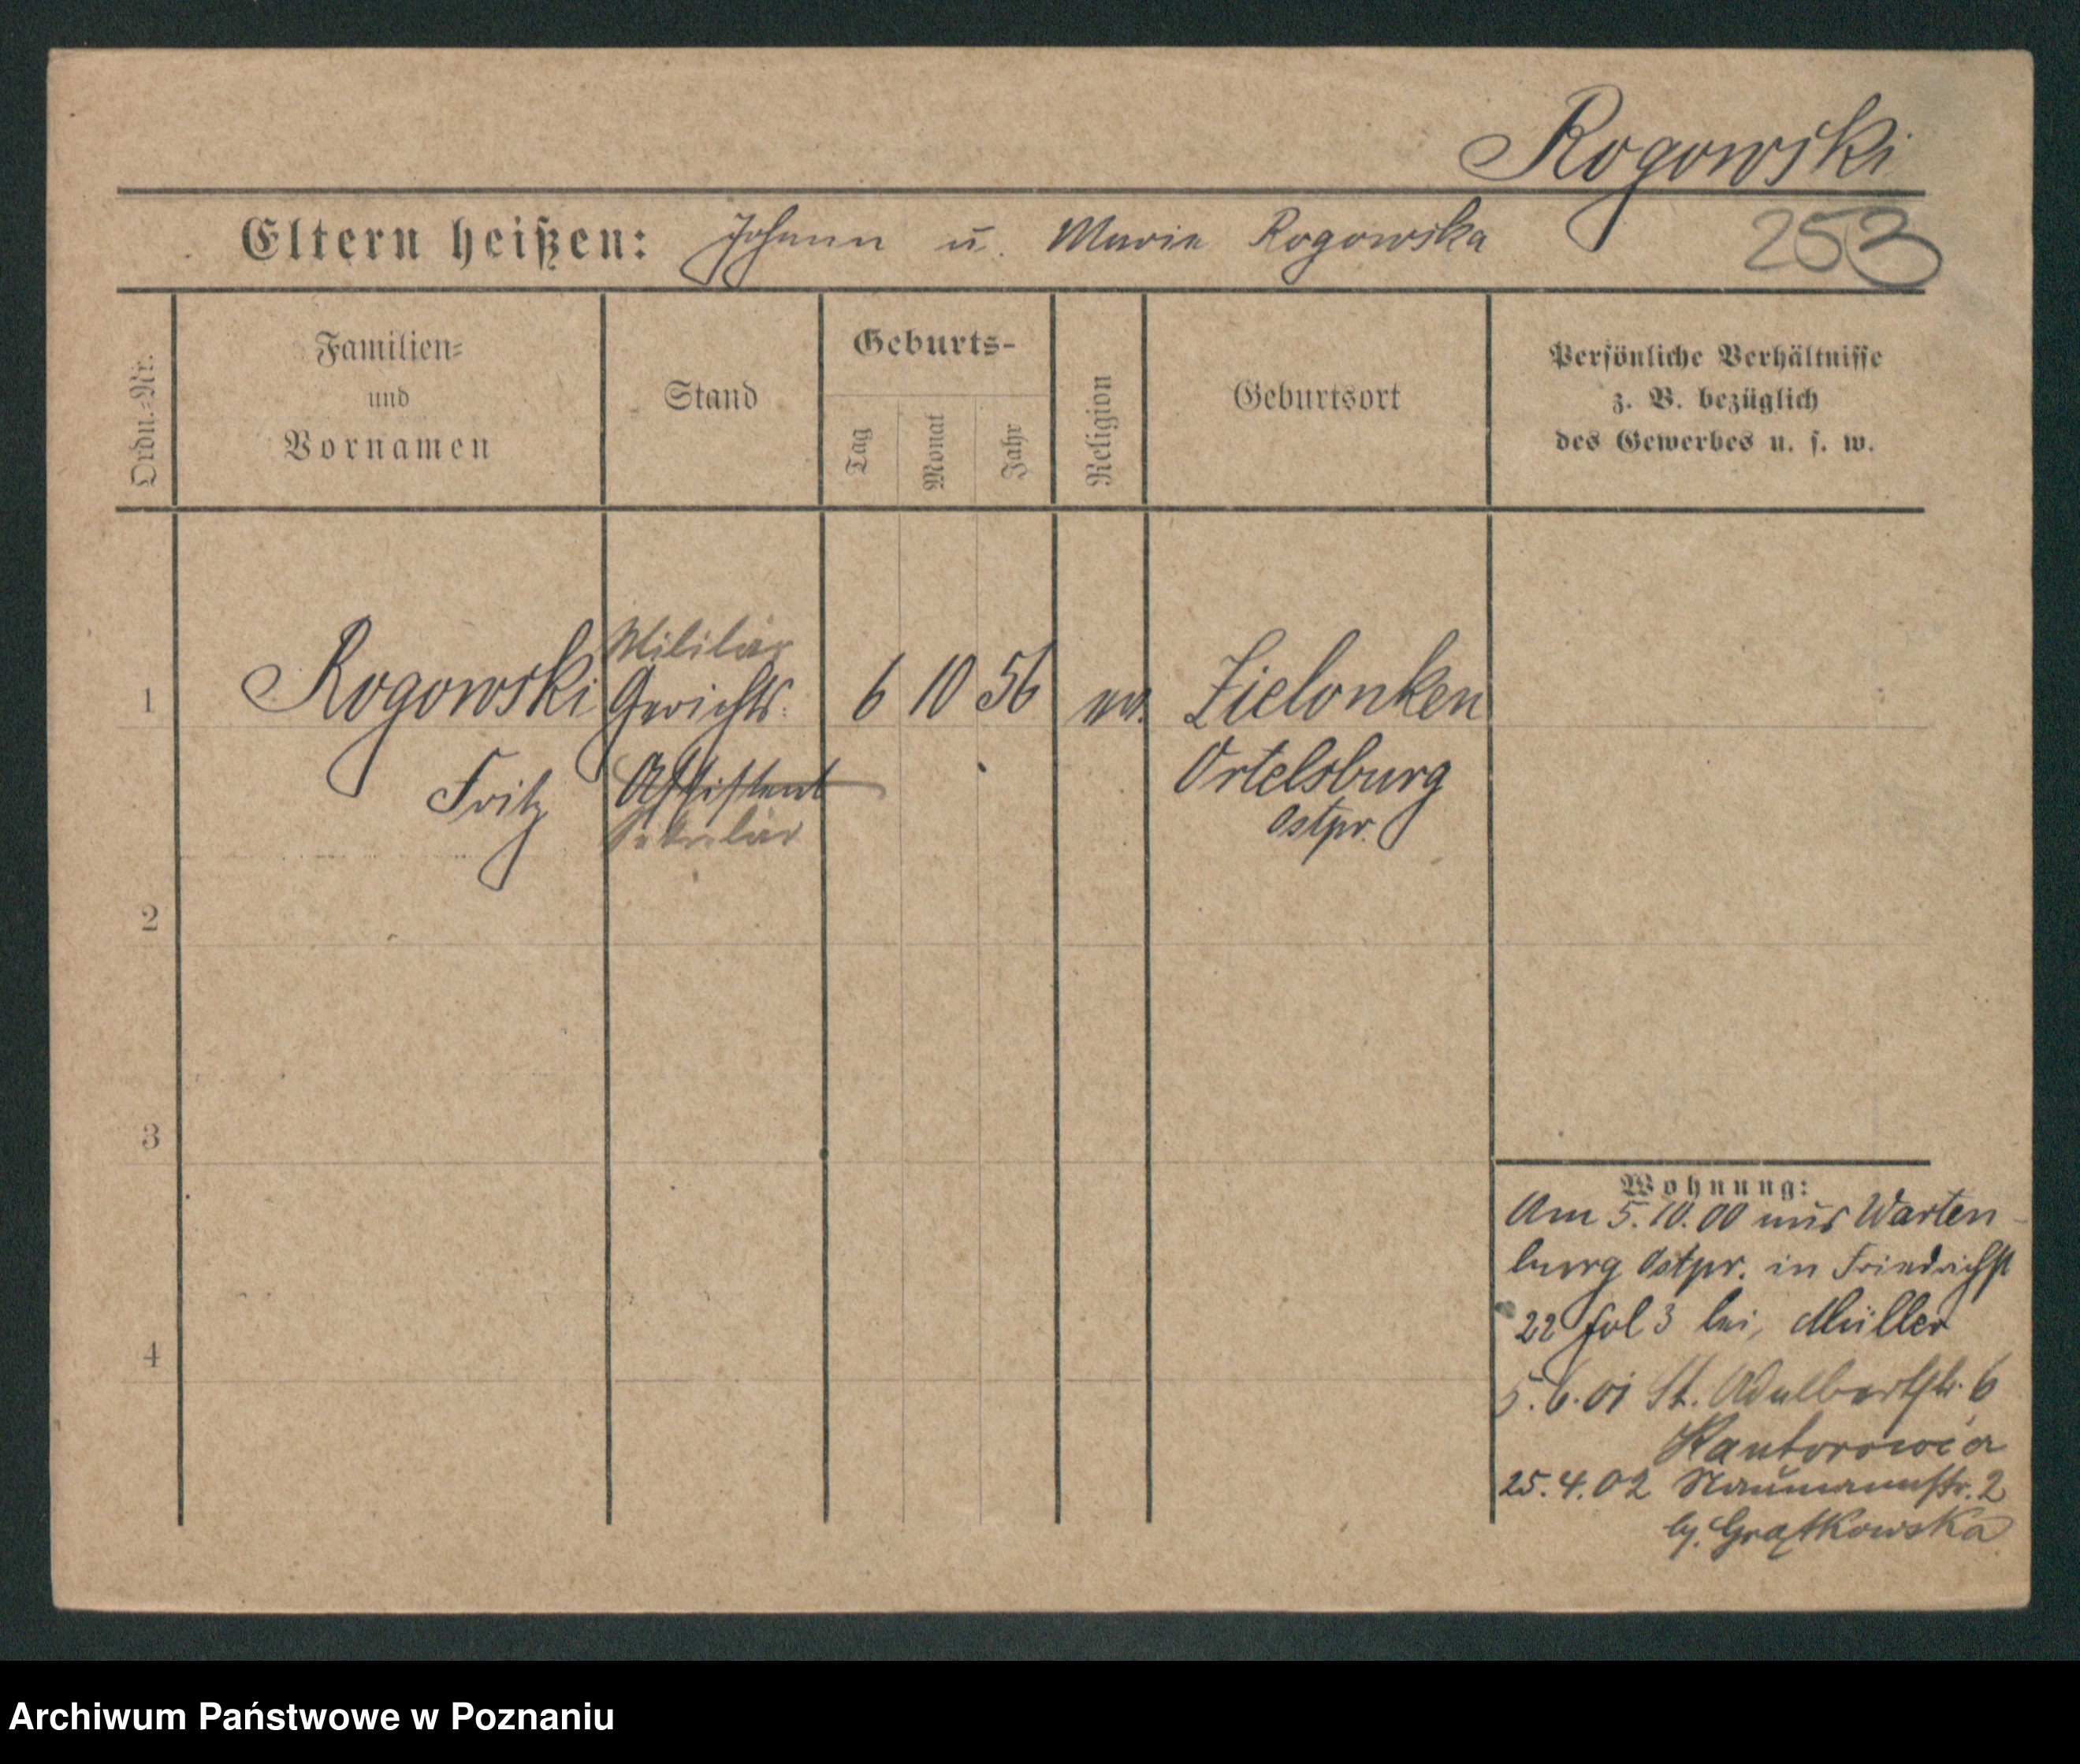 Rogowski
253
Eltern heißen: Johann u. Marie Rogowska
Ordn.-Nr.
Familien-
und
Vornamen
Stand
Geburts-
Tag
Monat
Jahr
Religion
Geburtsort
Persönliche Verhältnisse
z. B. bezüglich
des Gewerbes u. s. w.
Militär
1 Rogowski Gerichts- 6 10 56 ev. Zielonken
Fritz Assistent Ortelsburg
Sekretär Ostpr.
2
3
4
Wohnung:
Am 5.10.00 aus Warten-
burg Ostpr. in Friedrichst
22 Hol 3 bei, Müller
5.6.01 St. Adalbertstr. 6
Kantorowicz
25.4.02 Naumannstr. 2
by. Grątkowska
Archiwum Państwowe w Poznaniu